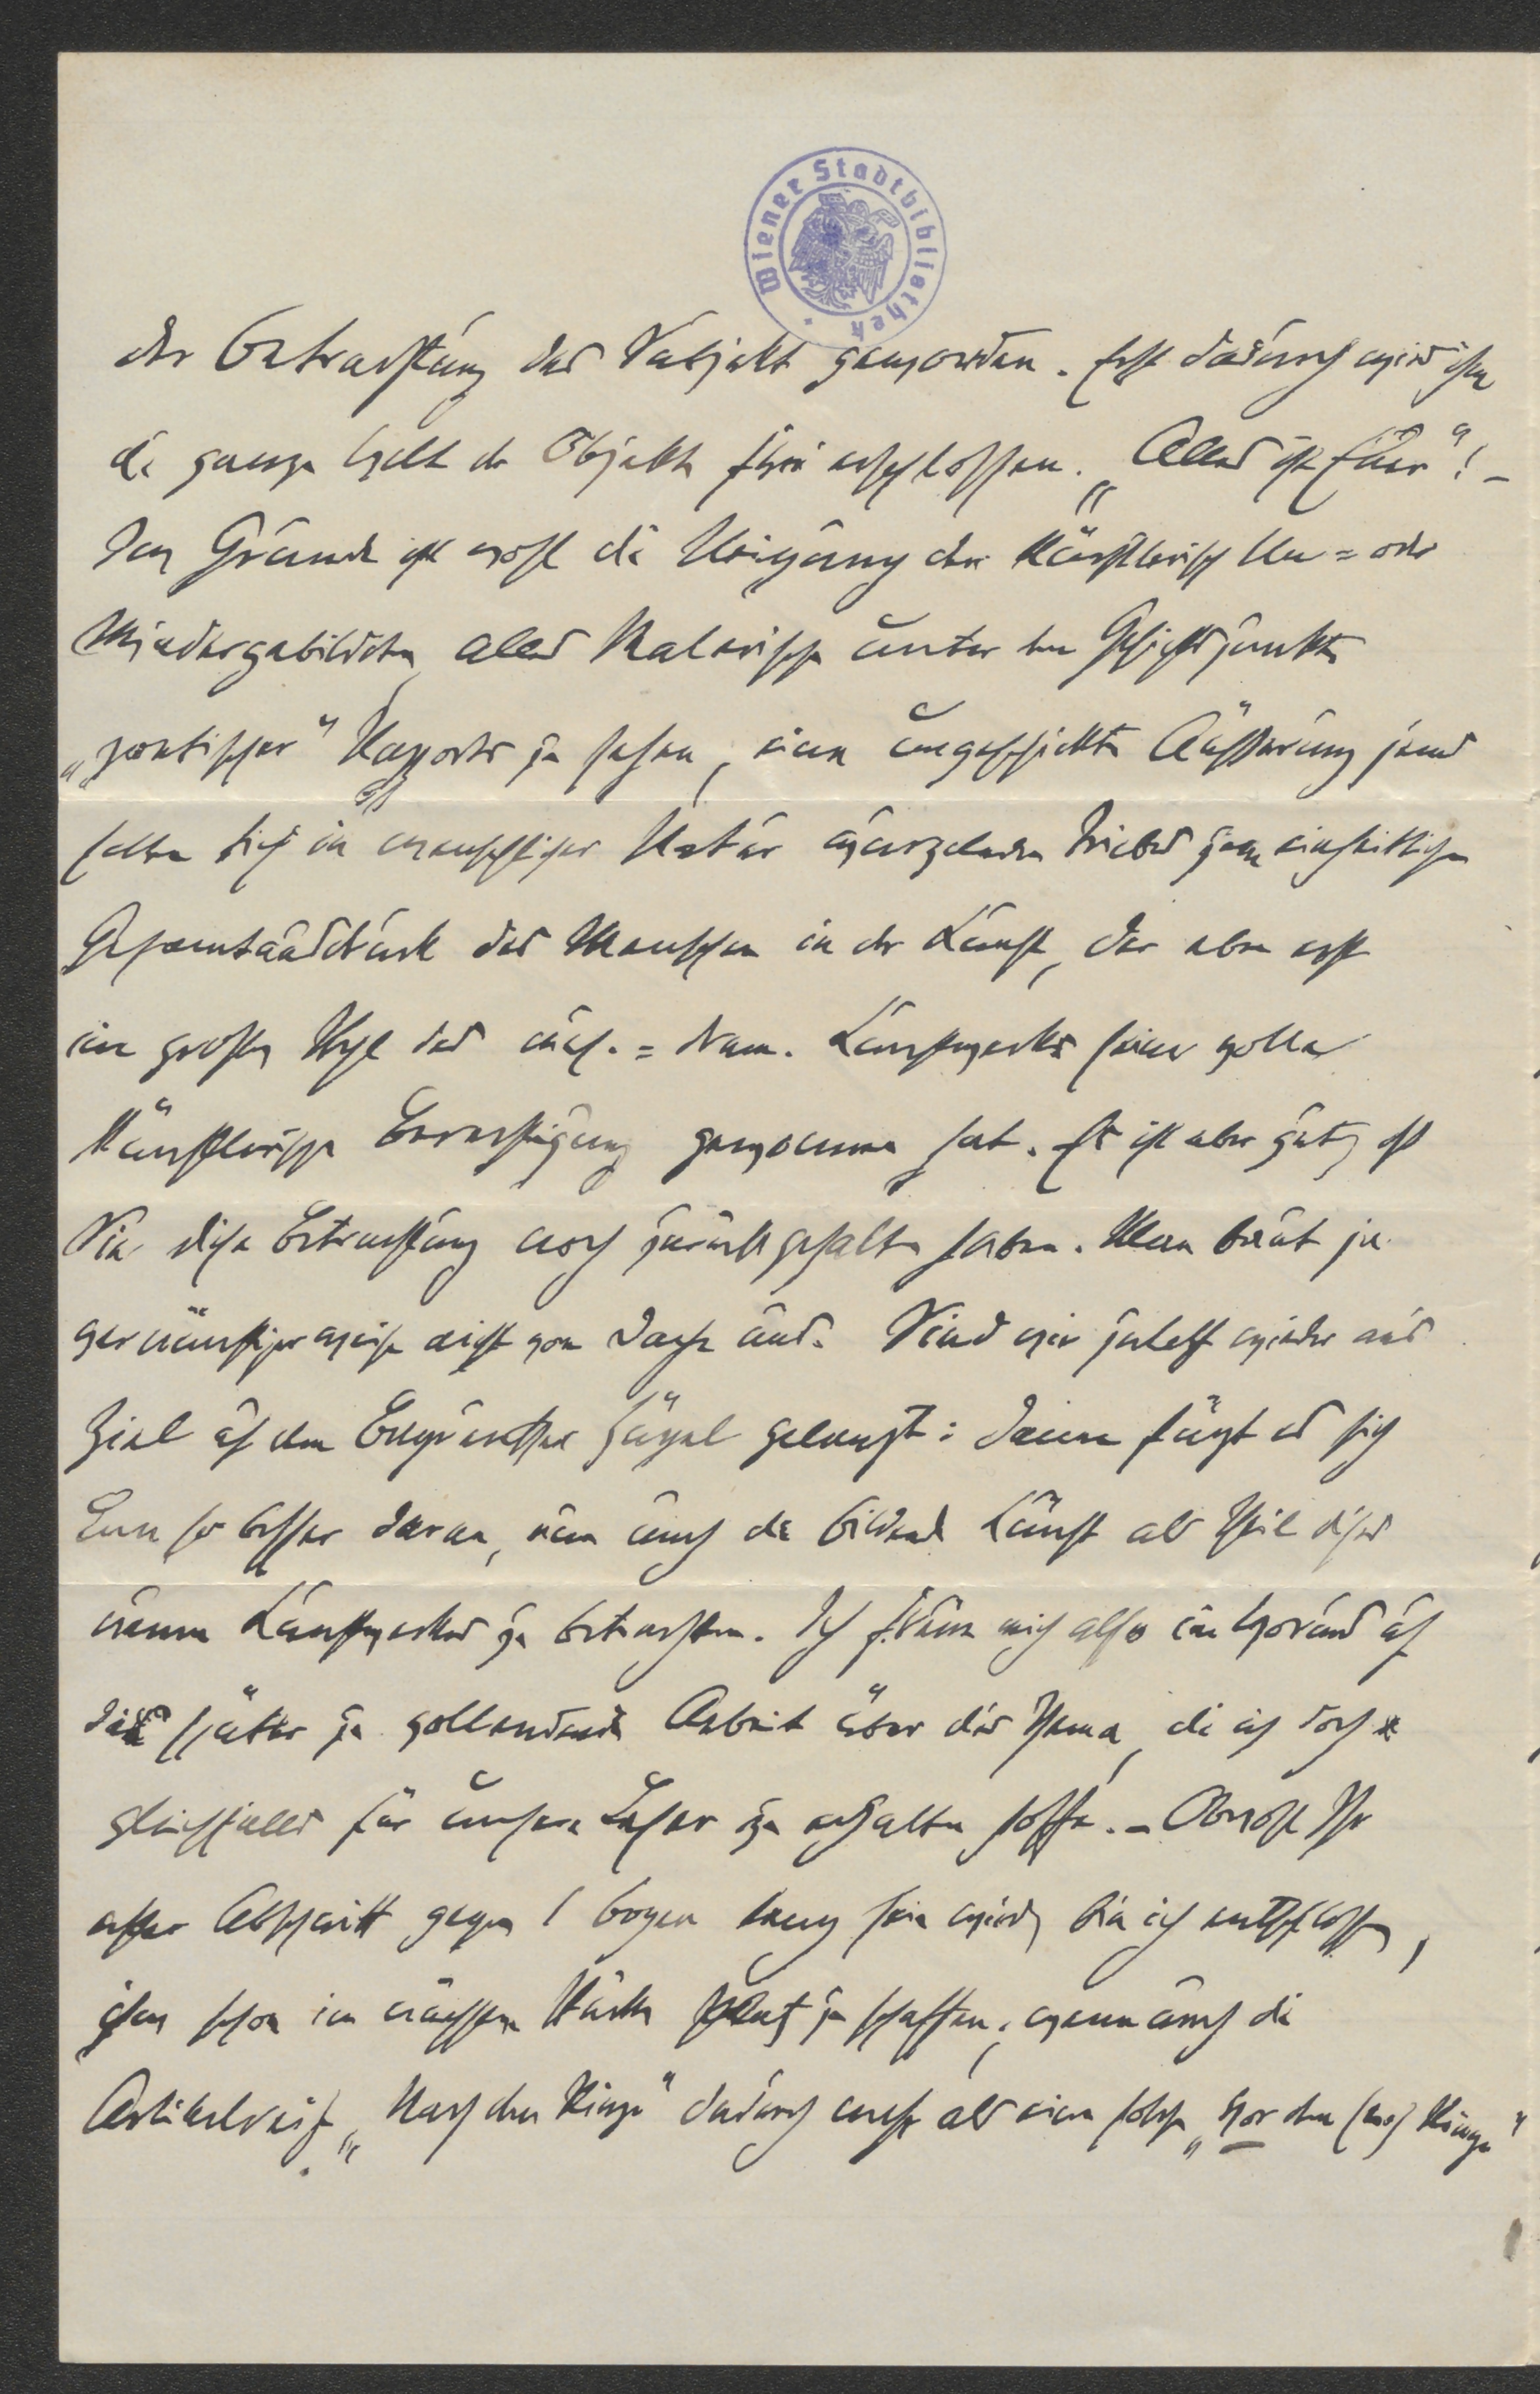 Wiener Stadtbibliothek
der Betrachtung das Subjekt geworden. Erst dadurch wird ihm
die ganze Welt der Objekte frei erschlossen. „Alles ist Euer"! –
Im Grunde ist wohl die Neigung der künstlerisch Un= oder
Mindergebildeten, alles Malerische unter dem Gesichtspunkte
„poetischer" Rapports zu sehen, eine ungeschickte Äußerung jenes
selben tief in menschlicher Natur wurzelnden Triebes zum einheitlichen
Gesamtausdruck des Menschen in der Kunst, der aber erst
im großen Styl des mus.= dram. Kunstwerks seine volle
künstlerische Berechtigung gewonnen hat. Es ist aber gut, daß
Sie diese Betrachtung noch zurückgehalten haben. Man baut ja
vernünftigerweise nicht vom Dache aus. Sind wir zuletzt wieder ans
Ziel auf dem Bayreuther Hügel gelangt: dann fügt es sich
um so besser daran, nun auch die bildende Kunst als Theil dieses
neuen Kunstwerkes zu betrachten. Ich freue mich also im Voraus auf
die später zu vollendende Arbeit über dies Thema, die ich doch
gleichfalls für unsere Leser zu erhalten hoffe. – Obwohl Ihr
erster Abschnitt gegen 1 Bogen lang sein wird, bin ich entschlossen,
ihm schon im nächsten Stücke Platz zu schaffen; wenn auch die
Artikelreihe „Nach den Kriege" dadurch mehr als eine solche „Vor dem (neuen) Kriege"